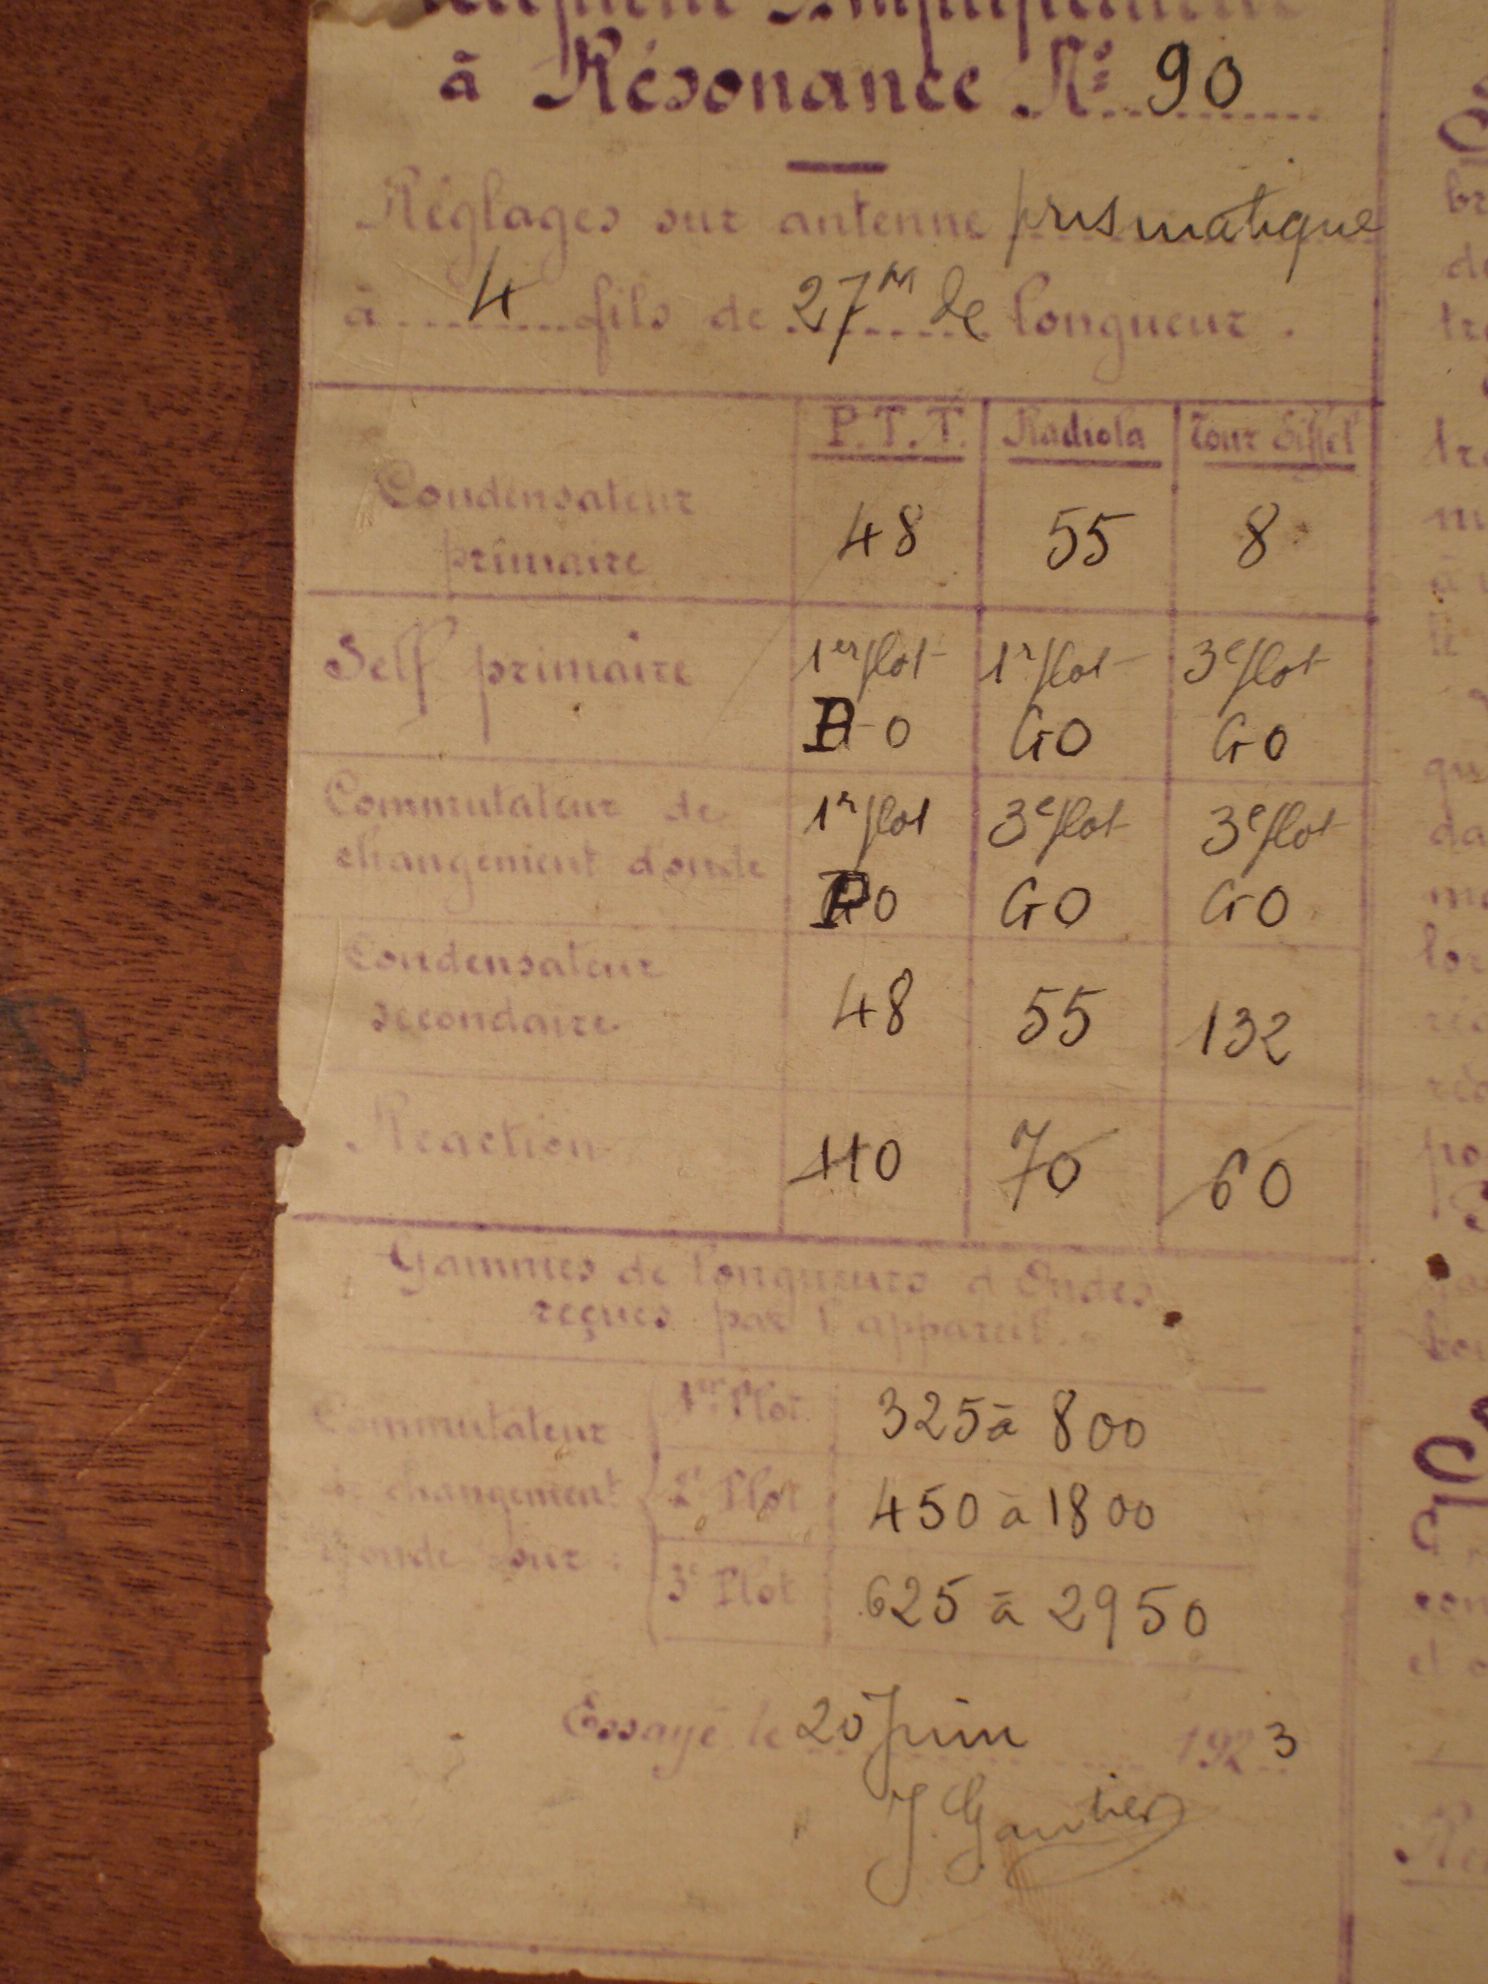 à Résonance N° 90
Réglages sur antenne prismatique
à 4 fils de 27m de longueur.
P.T.T. Radiola Tour Eiffel
Condensateur
primaire 48 55 8
Self primaire 1er plot 1r plot 3e plot
PO GO GO
Commutateur de 1r plot 3e plot 3e plot
changement d'onde PO GO GO
Condensateur
secondaire 48 55 132
Reaction 110 70 60
Gammes de longueurs d'Ondes
reçues par l'appareil.
Commutateur 1er Plot 325 à 800
de changement 2e Plot 450 à 1800
d'onde sur : 3e Plot 625 à 2950
Essayé le 20 Juin 1923
J. Gautier